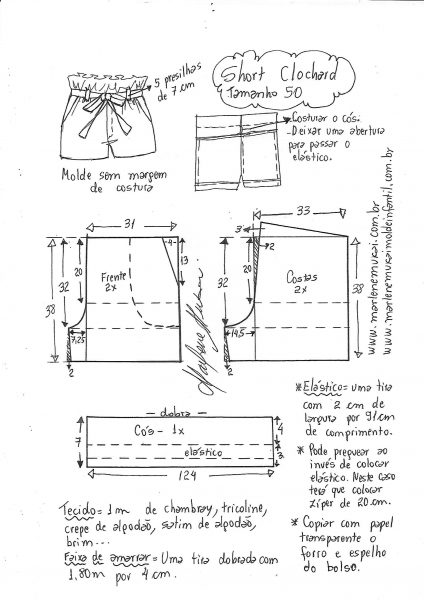 Short Clochard
Tamanho 50
5 presilhas
de 7 cm
Molde sem margem
de costura
Costurar o cós.
- Deixar uma abertura
para passar o
elástico.
www.marlenemukai.com.br
www.marlenemukaimoldeinfantil.com.br
31
4
38
32
20
13
Frente
2x
7,25
2
Marlene Mukai
33
3
2
32
20
38
Costas
2x
14,5
2
- dobra -
Cós - 1x
elástico
7
4
3
124
* Elástico = uma tira
com 2 cm de
largura por 91 cm
de comprimento.
* Pode preguear ao
invés de colocar
elástico. Neste caso
terá que colocar
zíper de 20 cm.
* Copiar com papel
transparente o
forro e espelho
do bolso.
Tecido = 1 m de chambray, tricoline,
crepe de algodão, setim de algodão,
brim...
Faixa de amarrar = Uma tira dobrada com
1,80m por 4 cm.